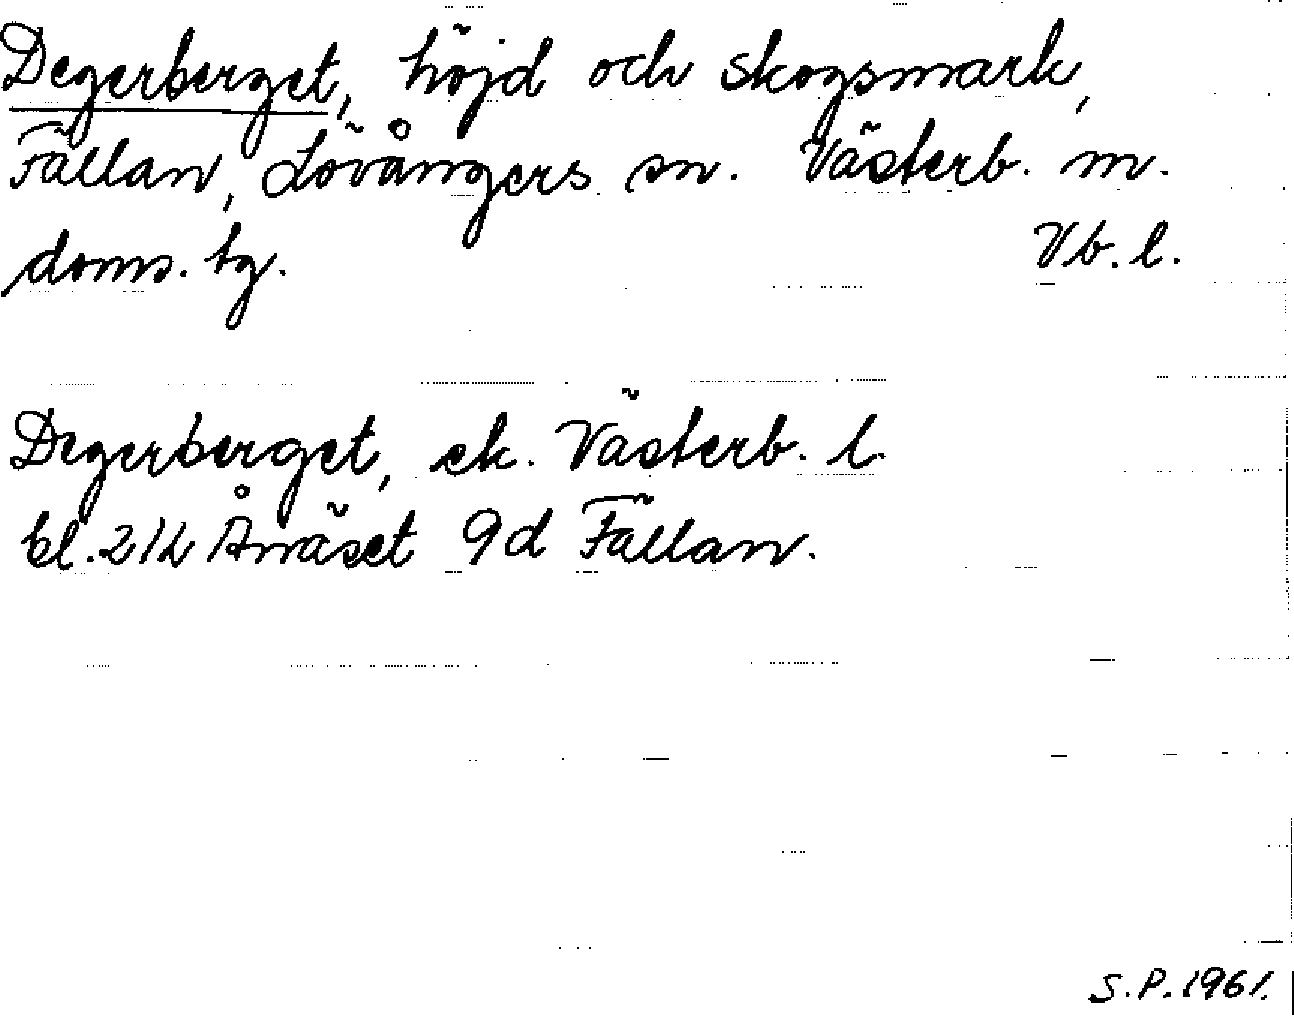 Degerberget, höjd och skogsmark,
Fällan, Lövångers sn. Västerb. m.
doms. tg. Vb. l.
Degerberget, ek. Västerb. l.
bl. 21L Ånäset 9d Fällan.
S.P. 1961.